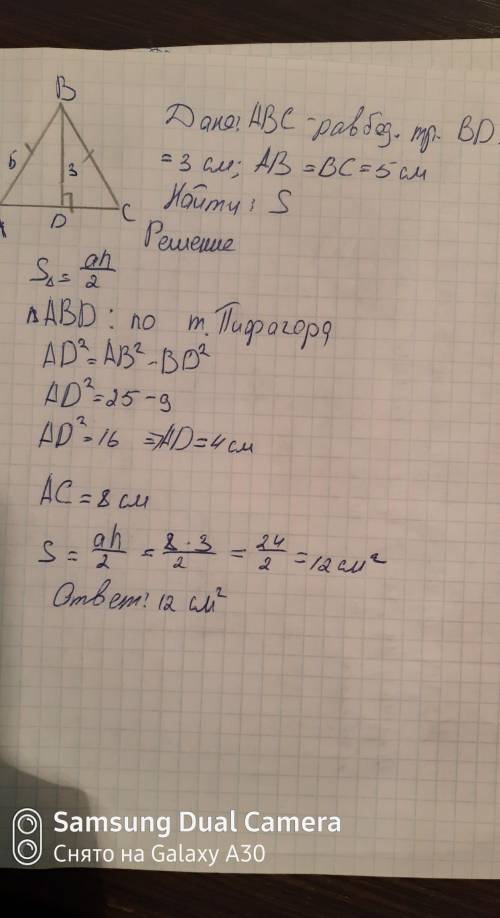 B
Дано: ABC - равбед. тр. BD
= 3 см; AB = BC = 5 см
5
3
Найти: S
A
D
C
Решение
S△ = ah/2
△ABD: по т. Пифагора
AD² = AB² - BD²
AD² = 25 - 9
AD² = 16 ⇒ AD = 4 см
AC = 8 см
S = ah/2 = 8 · 3/2 = 24/2 = 12 см²
Ответ: 12 см²
Samsung Dual Camera
Снято на Galaxy A30